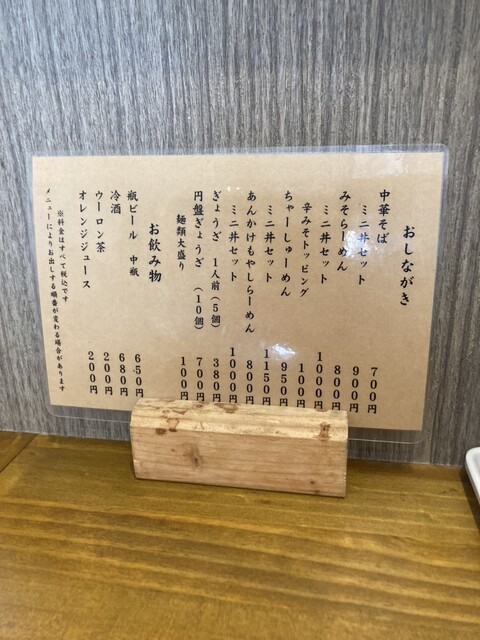 おしながき
中華そば 700円
ミニ丼セット 900円
みそらーめん 800円
ミニ丼セット 1000円
辛みそトッピング 100円
ちゃーしゅーめん 950円
ミニ丼セット 1150円
あんかけもやしらーめん 800円
ミニ丼セット 1000円
ぎょうざ 1人前(5個) 380円
円盤ぎょうざ (10個) 700円
麺類大盛り 100円
お飲み物
瓶ビール 中瓶 650円
冷酒 680円
ウーロン茶 200円
オレンジジュース 200円
※料金はすべて税込です
メニューによりお出しする順番が変わる場合があります